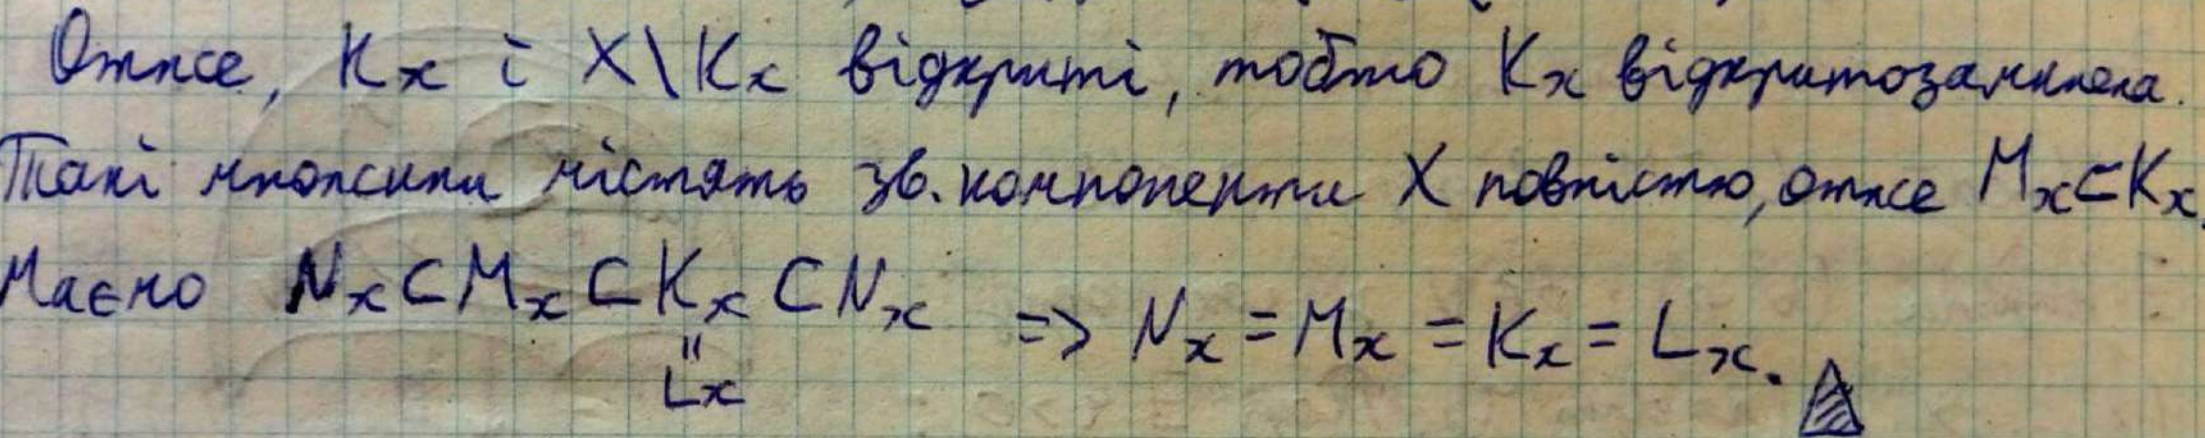 Отже, Kx і X\Kx відкриті, тобто Kx відкритозамкнена.
Такі множини містять зв. компоненти X повністю, отже Mx⊂Kx.
Маємо Nx⊂Mx⊂Kx⊂Nx => Nx=Mx=Kx=Lx.
"
Lx